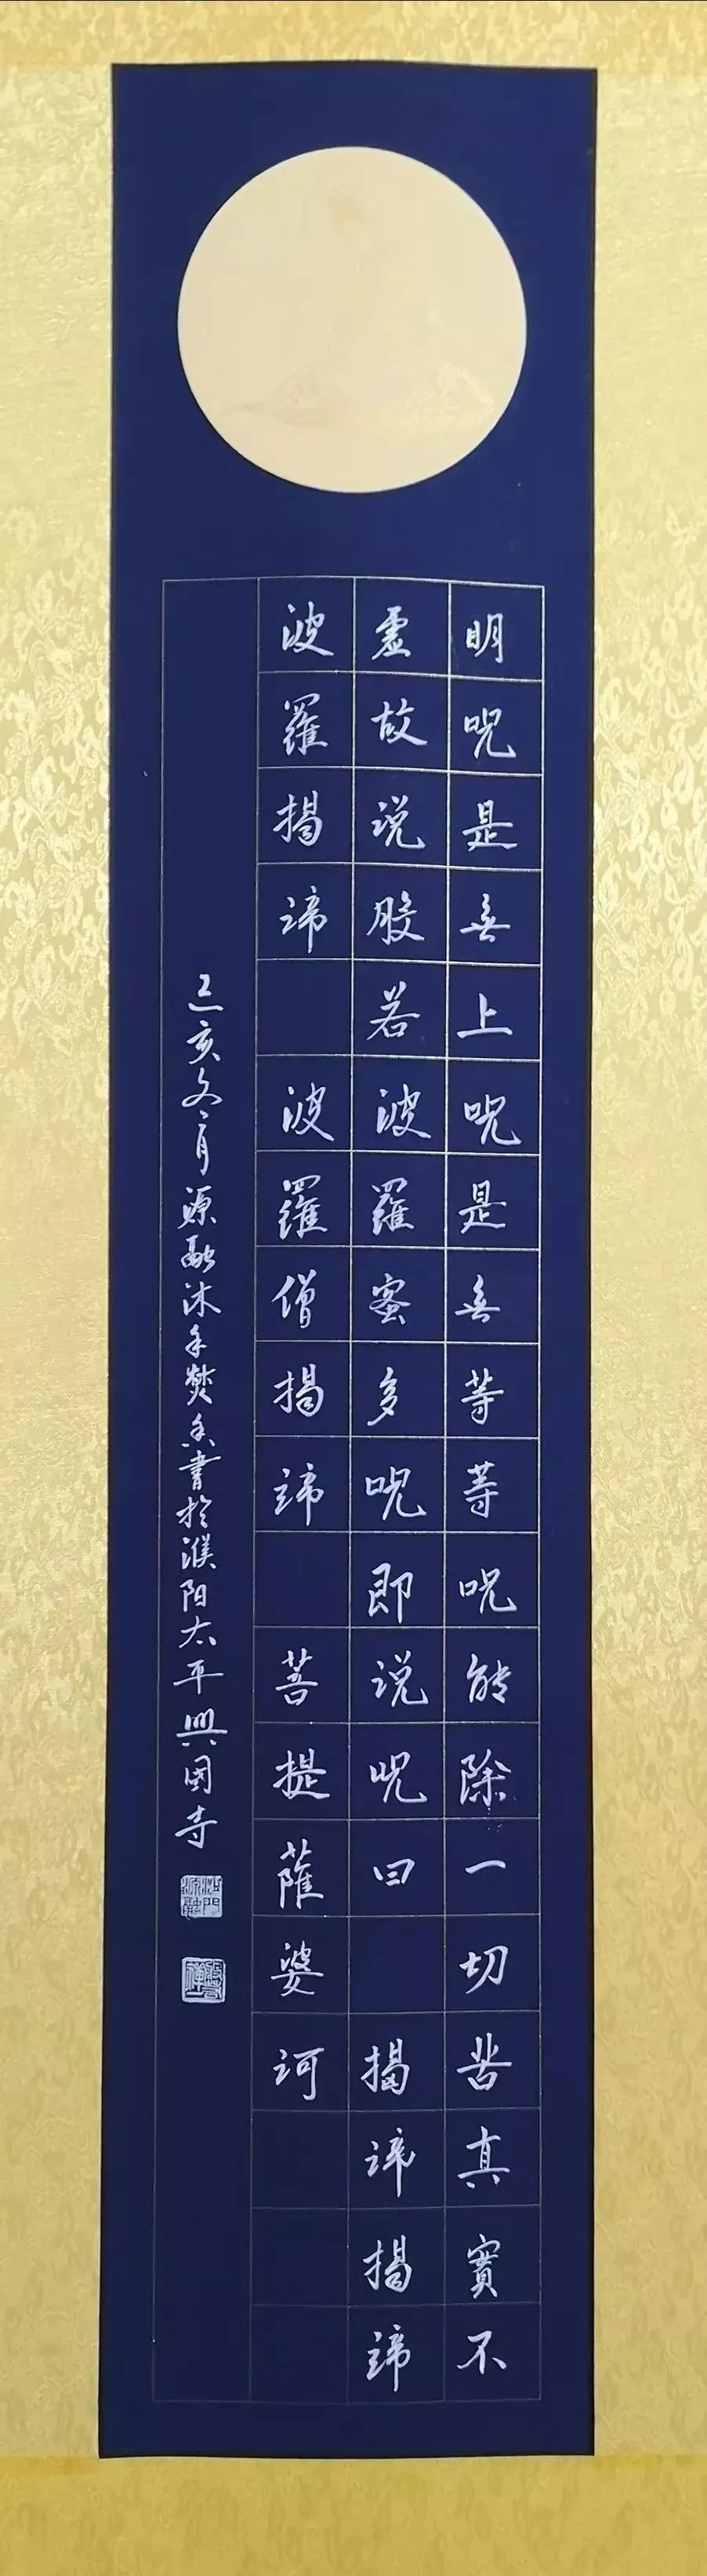 明呪是無上呪是無等等呪能除一切苦真實不
虛故说般若波羅蜜多呪即说呪曰 揭諦揭諦
波羅揭諦 波羅僧揭諦 菩提薩婆訶
己亥冬月源融沐手焚香書於濮阳太平興國寺
沙門源融